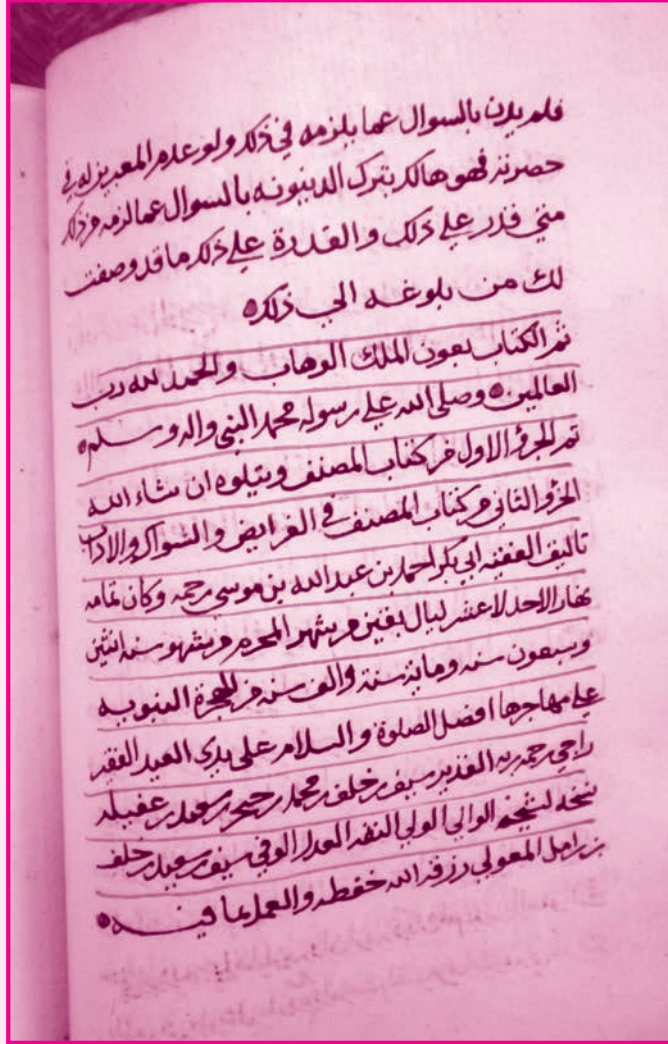 فلم يدن بالسوال عما يلزمه في ذلك ولو عدم المعبرين له في
حضرته فهو هالك بترك الدينونه بالسوال عما لزمه من ذلك
متي قدر علي ذلك والقدرة علي ذلك ما قد وصفت
لك من بلوغه الي ذلك
تم الكتاب بعون الملك الوهاب والحمد لله رب
العالمين وصلى الله علي رسوله محمد النبي واله وسلم
تم الجزؤ الاول من كتاب المصنف ويتلوه ان شاء الله
الجزؤ الثاني من كتاب المصنف في الفرايض والسواك والاداب
تاليف الفقيه ابي بكر احمد بن عبد الله بن موسي رحمه وكان تمامه
نهار الاحد لا عشر ليال بقين من شهر المحرم من شهور سنه اثنين
وسبعون سنه ومائة سنة والف سنه من الهجرة النبويه
علي مهاجرها افضل الصلوة والسلام على يدي العبد الفقير
راجي رحمة ربه القدير سيف بن خلف بن محمد بن سعيد بن
نسخه لشيخه الوالي الولي الثقه العدل الوفي سيف بن سعيد بن خلف
بن زامل المعولي رزقه الله حفظه والعمل بما فيه